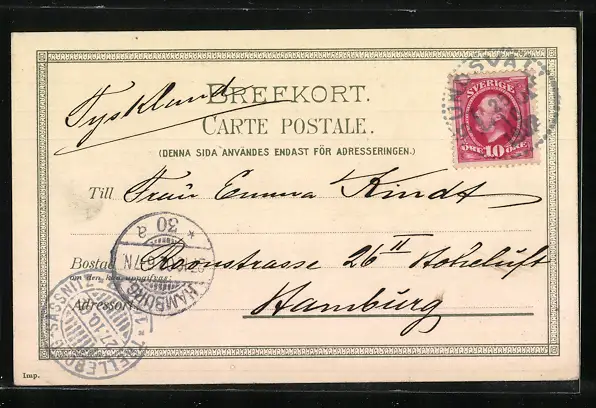 BREFKORT.
Tyskland
CARTE POSTALE.
(DENNA SIDA ANVÄNDES ENDAST FÖR ADRESSERINGEN.)
SVERIGE
ÖRE 10 ÖRE
Till Frau Emma Kindt
Bostad Roonstrasse 26 II Hoheluft
Adressort Hamburg
* 30 a
HAMBURG
SASSNITZ
27.10
Imp.